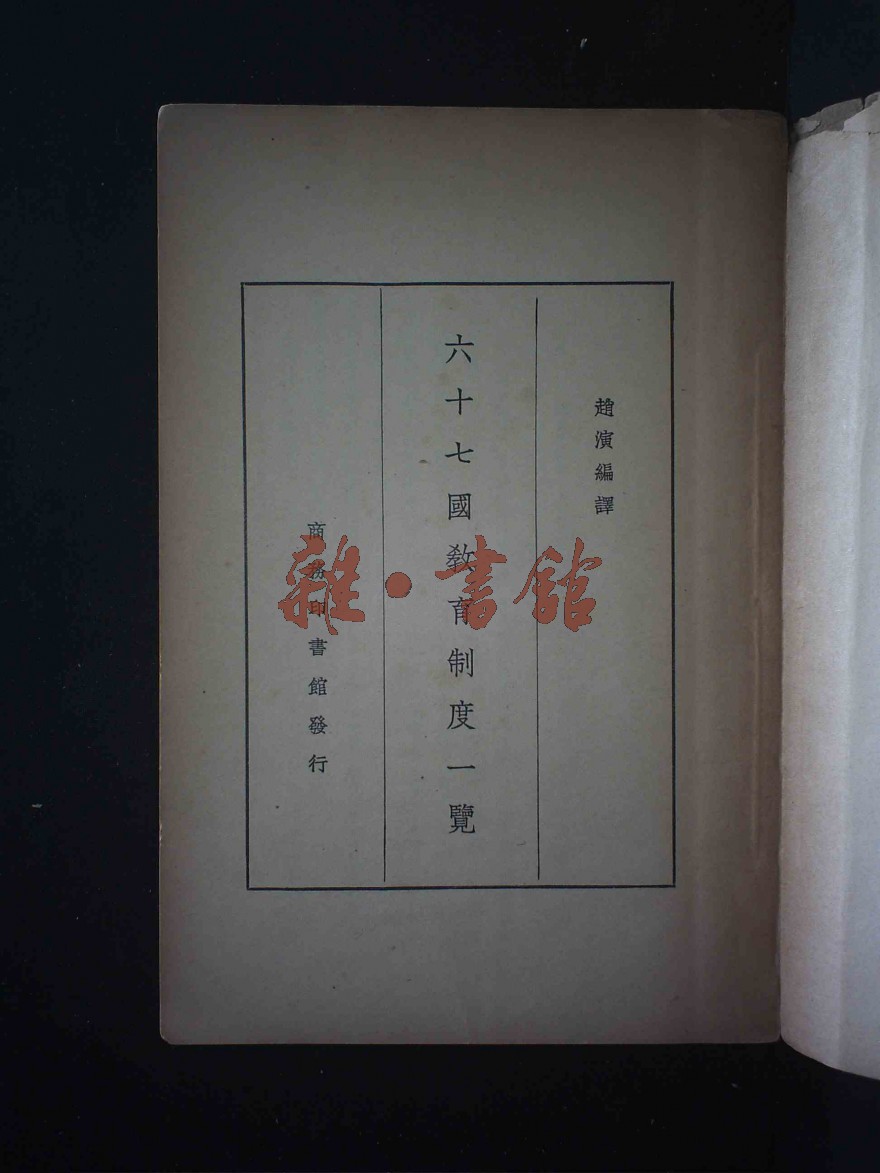 趙演編譯
六十七國教育制度一覽
商務印書館發行
雜·書館